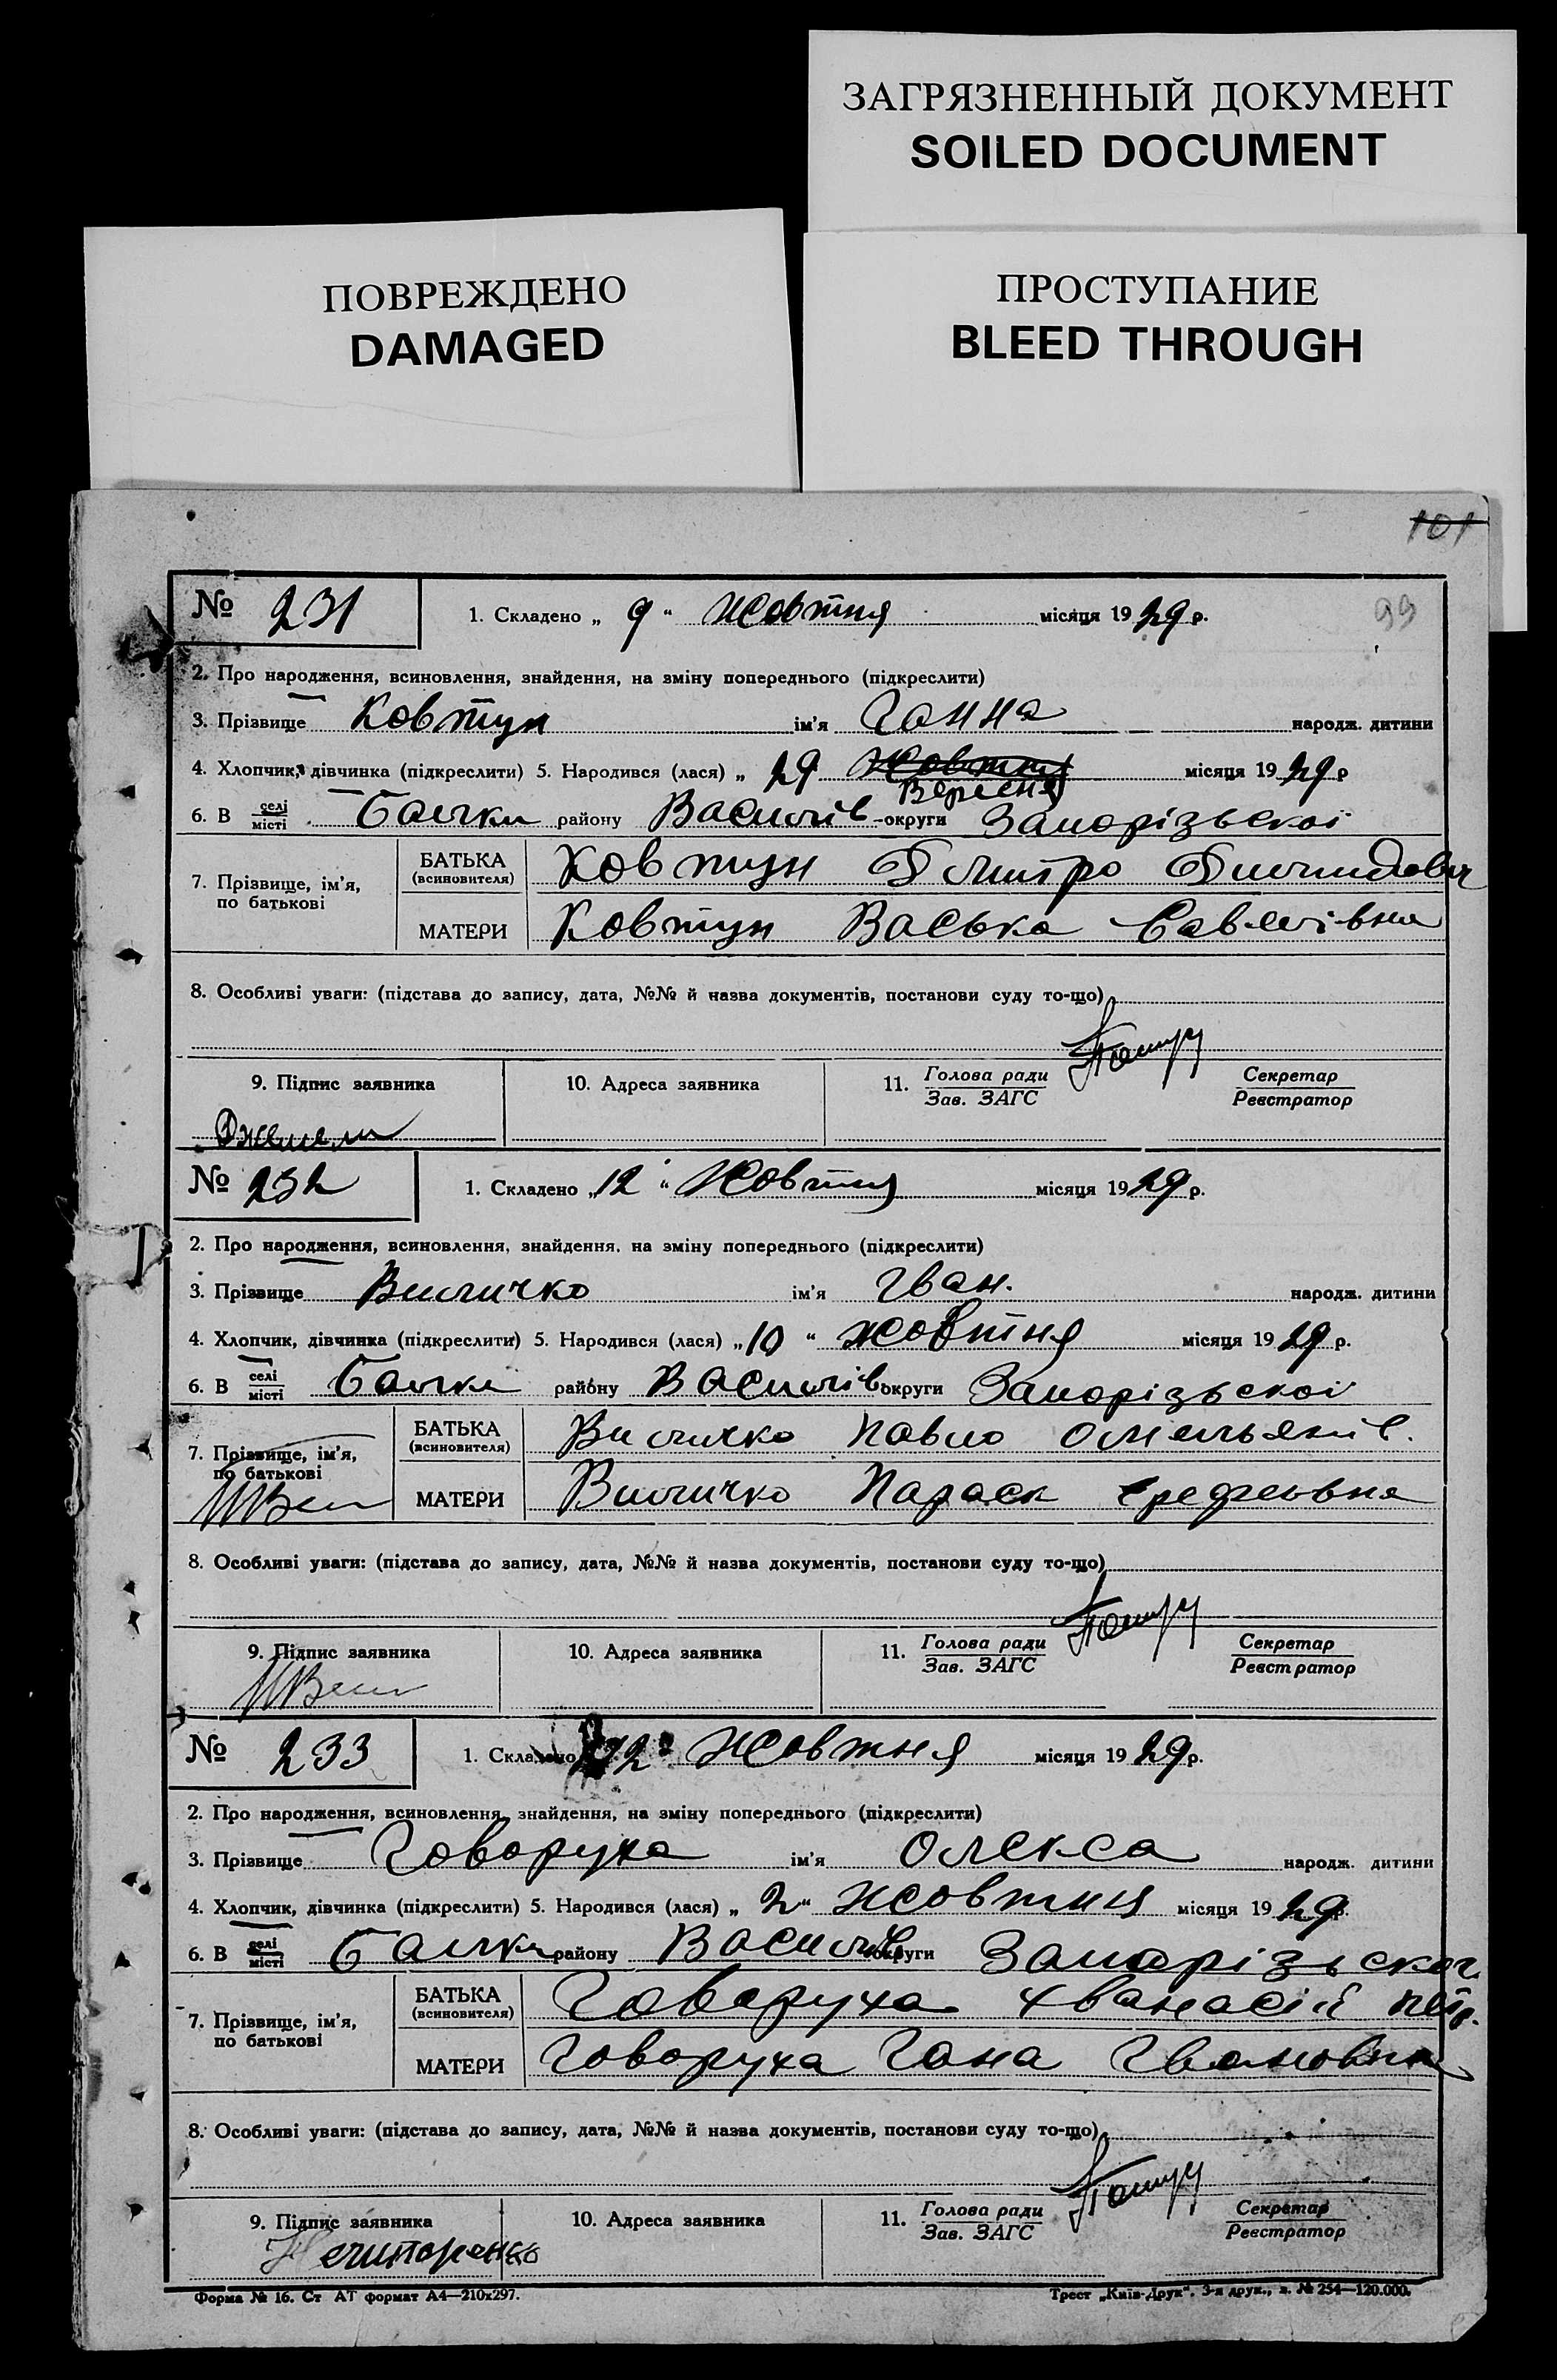 ЗАГРЯЗНЕННЫЙ ДОКУМЕНТ
SOILED DOCUMENT
ПОВРЕЖДЕНО
DAMAGED
ПРОСТУПАНИЕ
BLEED THROUGH
101
99
№ 231 1. Складено „ 9 “ Жовтня місяця 1929 р.
2. Про народження, всиновлення, знайдення, на зміну попереднього (підкреслити)
3. Прізвище Ковтун ім'я Ганна народж. дитини
4. Хлопчик, дівчинка (підкреслити) 5. Народився (лася) „ 29 Жовтня місяця 1929 р
Вересня
6. В селі / місті Балки району Василів округи Запорізької
7. Прізвище, ім'я, по батькові
БАТЬКА (всиновителя) Ковтун Дмитро
МАТЕРИ Ковтун Васька
8. Особливі уваги: (підстава до запису, дата, №№ й назва документів, постанови суду то-що)
9. Підпис заявника 10. Адреса заявника 11. Голова ради / Зав. ЗАГС Секретар / Реєстратор
№ 232 1. Складено „ 12 “ Жовтня місяця 1929 р.
2. Про народження, всиновлення, знайдення, на зміну попереднього (підкреслити)
3. Прізвище Виличко ім'я Іван. народж. дитини
4. Хлопчик, дівчинка (підкреслити) 5. Народився (лася) „ 10 “ жовтня місяця 1929 р.
6. В селі / місті Балки району Василів округи Запорізької
7. Прізвище, ім'я, по батькові
БАТЬКА (всиновителя) Виличко Павло
МАТЕРИ Виличко Параск
8. Особливі уваги: (підстава до запису, дата, №№ й назва документів, постанови суду то-що)
9. Підпис заявника 10. Адреса заявника 11. Голова ради / Зав. ЗАГС Секретар / Реєстратор
№ 233 1. Складено 12 Жовтня місяця 1929 р.
2. Про народження, всиновлення, знайдення, на зміну попереднього (підкреслити)
3. Прізвище Говоруха ім'я Олекса народж. дитини
4. Хлопчик, дівчинка (підкреслити) 5. Народився (лася) „ 2 “ жовтня місяця 1929 р.
6. В селі / місті Балки району Василів округи Запорізької
7. Прізвище, ім'я, по батькові
БАТЬКА (всиновителя) Говоруха Хванасій Петр.
МАТЕРИ Говоруха Гана Івановна
8. Особливі уваги: (підстава до запису, дата, №№ й назва документів, постанови суду то-що)
9. Підпис заявника 10. Адреса заявника 11. Голова ради / Зав. ЗАГС Секретар / Реєстратор
Нечипоренко
Форма № 16. Ст АТ формат А4—210х297. Трест „Київ-Друк“, 3-я друк., з. № 254—120.000.